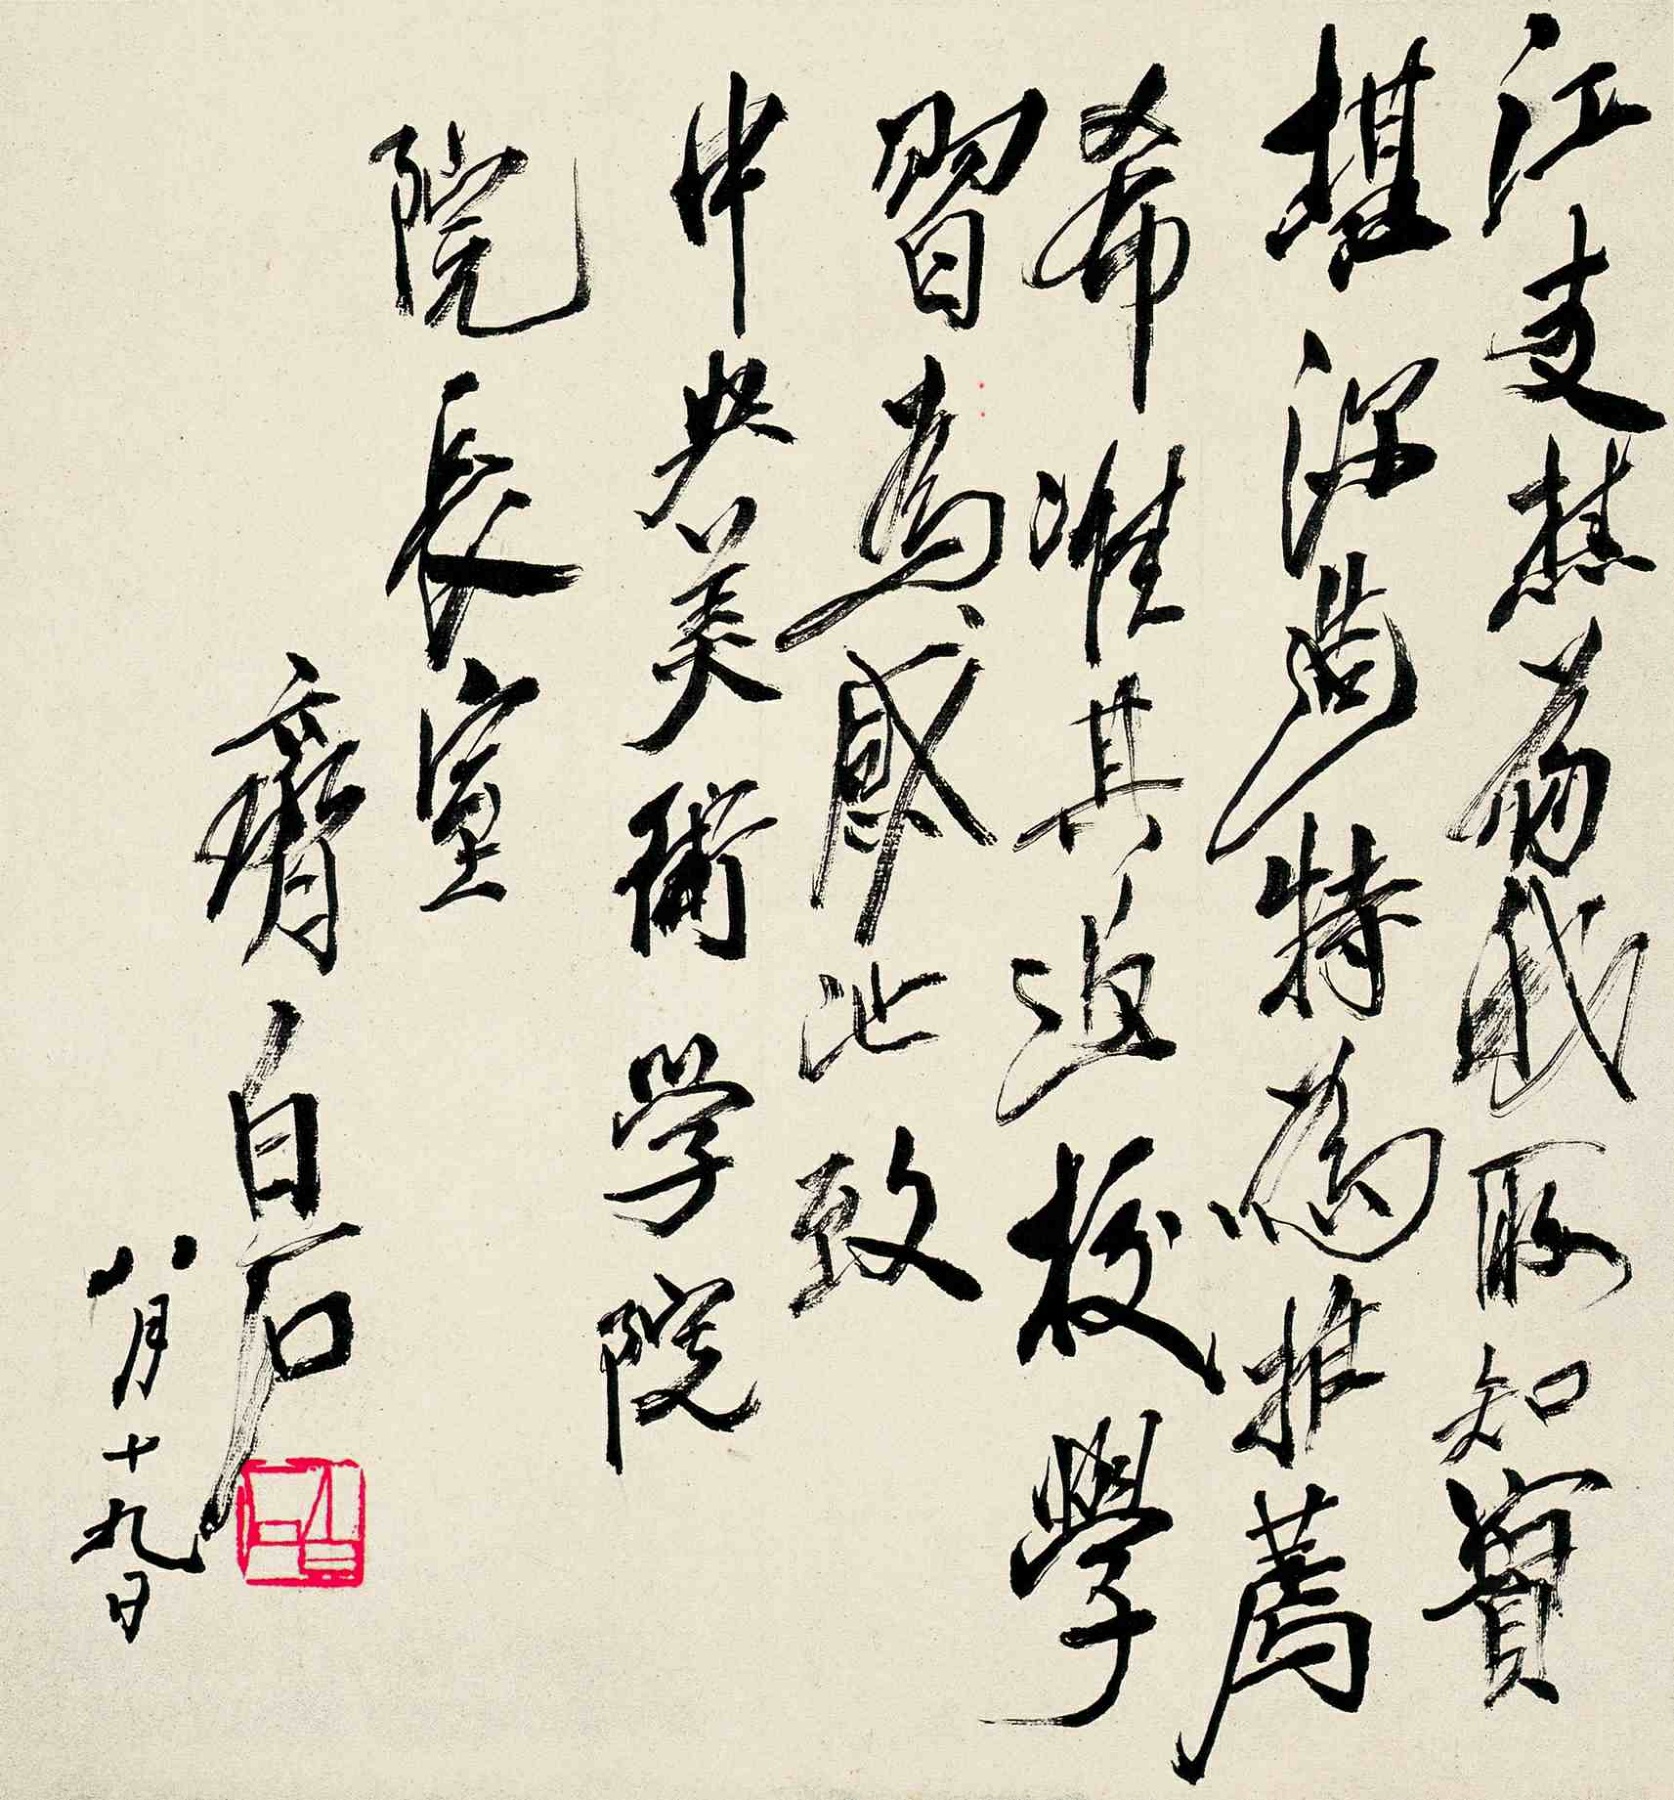 江友樵為我所知實
堪深造特為推薦
希准其進校學
習為感此致
中央美術學院
院長室
齊白石
八月十九日